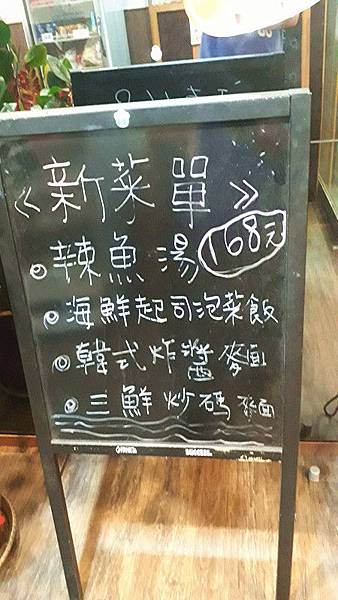 《新菜單》
辣魚湯 168元
海鮮起司泡菜飯
韓式炸醬麵
三鮮炒碼麵